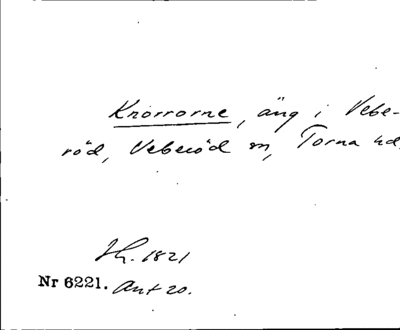 Knörrorne, äng i Vebe-
röd, Veberöd sn, Torna hd.
Sk. 1821
Nr 6221. Ant 20.